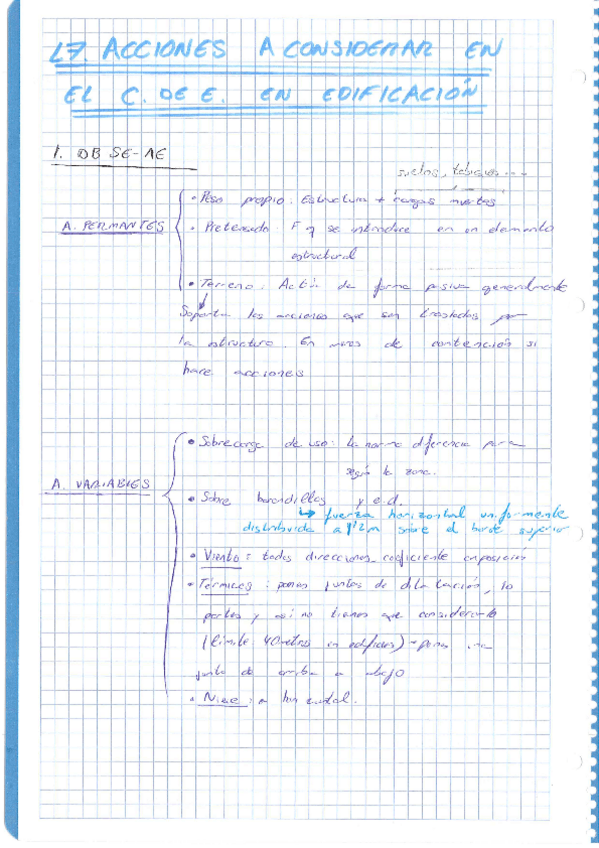 L7. ACCIONES A CONSIDERAR EN
EL C. DE E. EN EDIFICACIÓN
1. DB SE-AE
suelos, tabiques ...
• Peso propio: Estructura + cargas muertas
A. PERMANTES
• Pretensado F q se introduce en un elemento
estructural
• Terreno: Actúa de forma pasiva generalmente
Soporta las acciones que son trasladadas por
la estructura. En muros de contención si
hace acciones
• Sobrecarga de uso: la norma diferencia
según la zona.
A. VARIABLES
• Sobre barandillas y e.d.
↳ fuerza horizontal uniformente
distribuida a 1'2m sobre el borde superior
• Viento: todas direcciones, coeficiente exposición
• Térmicas: poner juntas de dilatación, lo
partes y así no tienes que considerarlo
(límite 40 metros en edificios) → pones una
junta de arriba a abajo
• Nieve: